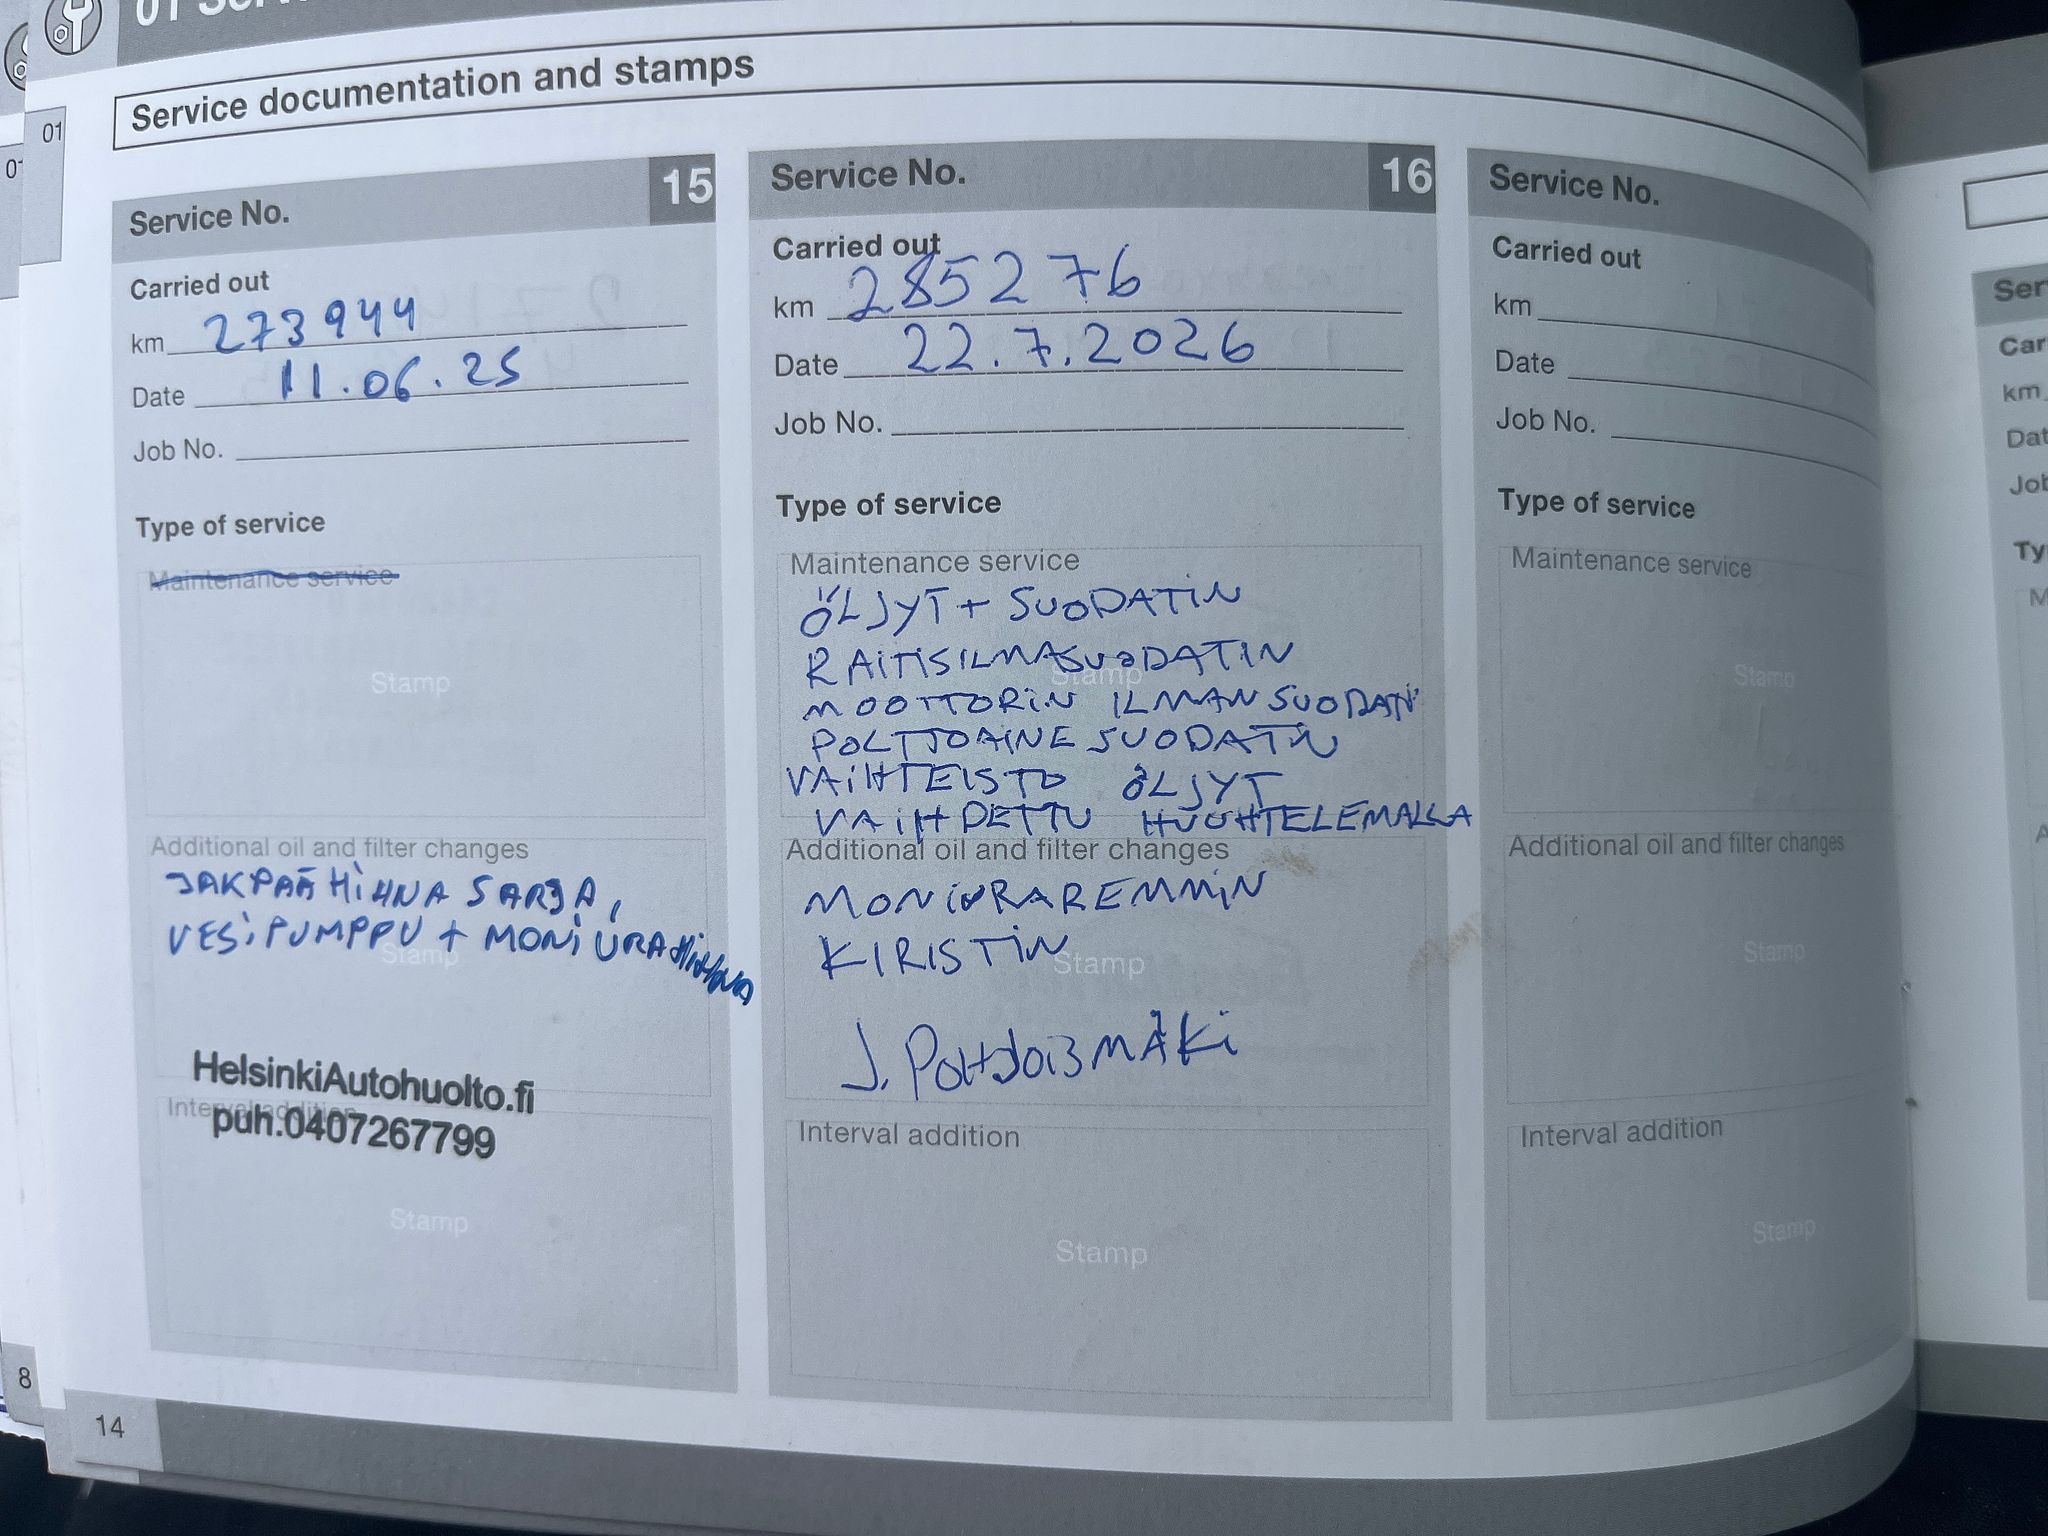 01 Serv
Service documentation and stamps
01
01
Service No. 15
Carried out
km 273944
Date 11.06.25
Job No.
Type of service
Maintenance service
Stamp
Additional oil and filter changes
JAKPÄÄ HIHNA SARJA,
VESIPUMPPU + MONIURAHIHNA
Stamp
HelsinkiAutohuolto.fi
Interval addition
puh.0407267799
Stamp
Service No. 16
Carried out
km 285276
Date 22.7.2026
Job No.
Type of service
Maintenance service
ÖLJYT + SUODATIN
RAITISILMASUODATIN
Stamp
MOOTTORIN ILMANSUODATI
POLTTOAINE SUODATIN
VAIHTEISTO ÖLJYT
VAIHDETTU HUUHTELEMALLA
Additional oil and filter changes
MONIURAREMMIN
KIRISTIN
Stamp
J. POHJOISMÄKI
Interval addition
Stamp
Service No.
Carried out
km
Date
Job No.
Type of service
Maintenance service
Stamp
Additional oil and filter changes
Stamp
Interval addition
Stamp
Ser
Car
km
Dat
Job
Ty
M
A
8
14